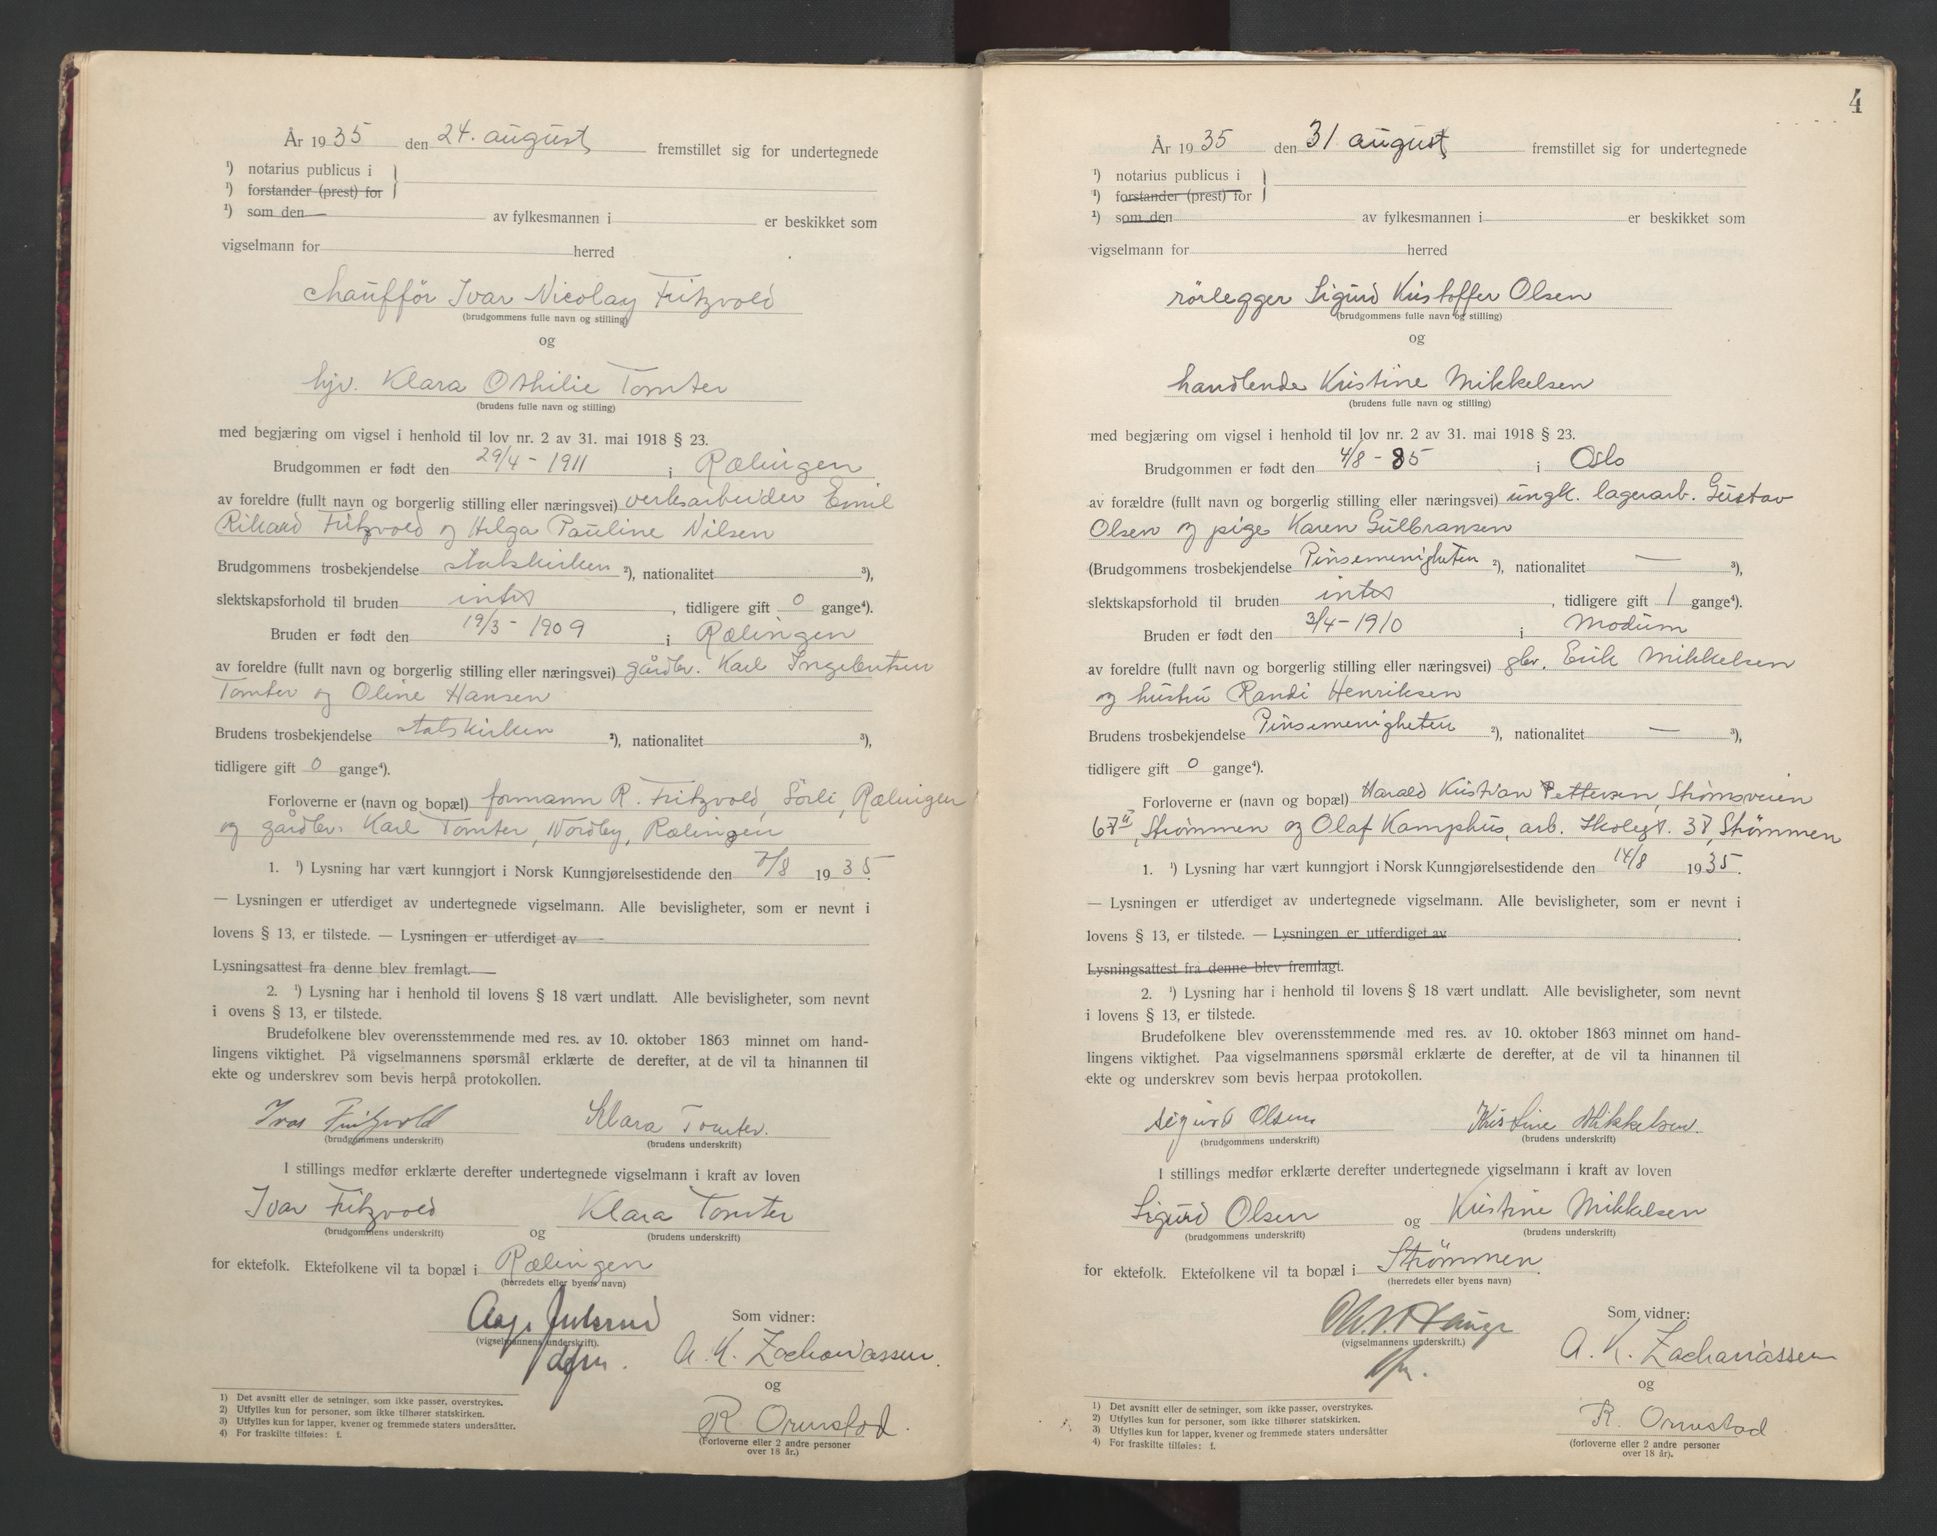 År 1935 den 24. august fremstillet sig for undertegnede
¹) notarius publicus i
¹) forstander (prest) for
¹) som den av fylkesmannen i er beskikket som
vigselmann for herred
chaufför Ivar Nicolay Fritzvold
(brudgommens fulle navn og stilling)
og
hjv. Klara Othilie Tomter
(brudens fulle navn og stilling)
med begjæring om vigsel i henhold til lov nr. 2 av 31. mai 1918 § 23.
Brudgommen er født den 29/4 - 1911 i Rælingen
av foreldre (fullt navn og borgerlig stilling eller næringsvei) verksarbeider Emil
Rikard Fritzvold og Helga Pauline Nilsen
Brudgommens trosbekjendelse statskirken ²), nationalitet ³),
slektskapsforhold til bruden intet, tidligere gift 0 gange⁴).
Bruden er født den 19/3 - 1909 i Rælingen
av foreldre (fullt navn og borgerlig stilling eller næringsvei) gårdbr. Karl Ingebretsen
Tomter og Oline Hansen
Brudens trosbekjendelse statskirken ²), nationalitet ³),
tidligere gift 0 gange⁴).
Forloverne er (navn og bopæl) formann R. Fritzvold, Sörli, Rælingen
og gårdbr. Karl Tomter, Nordby, Rælingen
1. ¹) Lysning har vært kunngjort i Norsk Kunngjørelsestidende den 7/8 1935.
— Lysningen er utferdiget av undertegnede vigselmann. Alle bevisligheter, som er nevnt i
lovens § 13, er tilstede. — Lysningen er utferdiget av
Lysningsattest fra denne blev fremlagt.
2. ¹) Lysning har i henhold til lovens § 18 vært undlatt. Alle bevisligheter, som nevnt
i ovens § 13, er tilstede.
Brudefolkene blev overensstemmende med res. av 10. oktober 1863 minnet om hand-
lingens viktighet. På vigselmannens spørsmål erklærte de derefter, at de vil ta hinannen til
ekte og underskrev som bevis herpå protokollen.
Ivar Fritzvold Klara Tomter.
(brudgommens underskrift) (brudens underskrift)
I stillings medfør erklærte derefter undertegnede vigselmann i kraft av loven
Ivar Fritzvold og Klara Tomter
(brudgommens underskrift) (brudens underskrift)
for ektefolk. Ektefolkene vil ta bopæl i Rælingen
(herredets eller byens navn)
Som vidner:
Aage
(vigselmannens underskrift).
A. K. Zachariassen.
og
R. Ormstad.
(Forloverne eller 2 andre personer
over 18 år.)
1) Det avsnitt eller de setninger, som ikke passer, overstrykes.
2) Utfylles kun for personer, som ikke tilhører statskirken.
3) Utfylles kun for lapper, kvener og fremmede staters undersåtter.
4) For fraskilte tilføies: f.
4
År 1935 den 31 august fremstillet sig for undertegnede
¹) notarius publicus i
¹) forstander (prest) for
¹) som den av fylkesmannen i er beskikket som
vigselmann for herred
rörlegger Sigurd Kristoffer Olsen
(brudgommens fulle navn og stilling)
og
handlende Kristine Mikkelsen
(brudens fulle navn og stilling)
med begjæring om vigsel i henhold til lov nr. 2 av 31. mai 1918 § 23.
Brudgommen er født den 4/8 - 85 i Oslo
av forældre (fullt navn og borgerlig stilling eller næringsvei) ungk. lagerarb. Gustav
Olsen og pige Karen Gulbransen
(Brudgommens trosbekjendelse Pinsemenigheten ²), nationalitet — ³),
slektskapsforhold til bruden intet, tidligere gift 1 gange⁴).
Bruden er født den 3/4 - 1910 i Modum
av foreldre (fullt navn og borgerlig stilling eller næringsvei) gbr. Erik Mikkelsen
og hustru Randi Henriksen
Brudens trosbekjendelse Pinsemenigheten ²), nationalitet — ³),
tidligere gift 0 gange⁴).
Forloverne er (navn og bopæl) Harald Kristian Pettersen, Strømsveien
67 II, Strømmen og Olaf Kamphus, arb. Skolegt. 37, Strømmen
1. ¹) Lysning har vært kunngjort i Norsk Kunngjørelsestidende den 14/8 1935.
— Lysningen er utferdiget av undertegnede vigselmann. Alle bevisligheter, som er nevnt i
lovens § 13, er tilstede. — Lysningen er utferdiget av
Lysningsattest fra denne blev fremlagt.
2. ¹) Lysning har i henhold til lovens § 18 vært undlatt. Alle bevisligheter, som nevnt
i lovens § 13, er tilstede.
Brudefolkene blev overensstemmende med res. av 10. oktober 1863 minnet om hand-
lingens viktighet. Paa vigselmannens spørsmål erklærte de derefter, at de vil ta hinannen til
ekte og underskrev som bevis herpaa protokollen.
Sigurd Olsen Kristine Mikkelsen.
(brudgommens underskrift) (brudens underskrift)
I stillings medfør erklærte derefter undertegnede vigselmann i kraft av loven
Sigurd Olsen og Kristine Mikkelsen
(brudgommens underskrift) (brudens underskrift)
for ektefolk. Ektefolkene vil ta bopæl i Strömmen.
(herredets eller byens navn)
Som vidner:
(vigselmannens underskrift.)
A. K. Zachariassen
og
R. Ormstad
(forloverne eller 2 andre personer
over 18 år).
1) Det avsnitt eller de setninger, som ikke passer, overstrykes.
2) Utfylles kun for personer, som ikke tilhører statskirken.
3) Utfylles kun for lapper, kvener og fremmede staters undersåtter
4) For fraskilte tilføies: f.